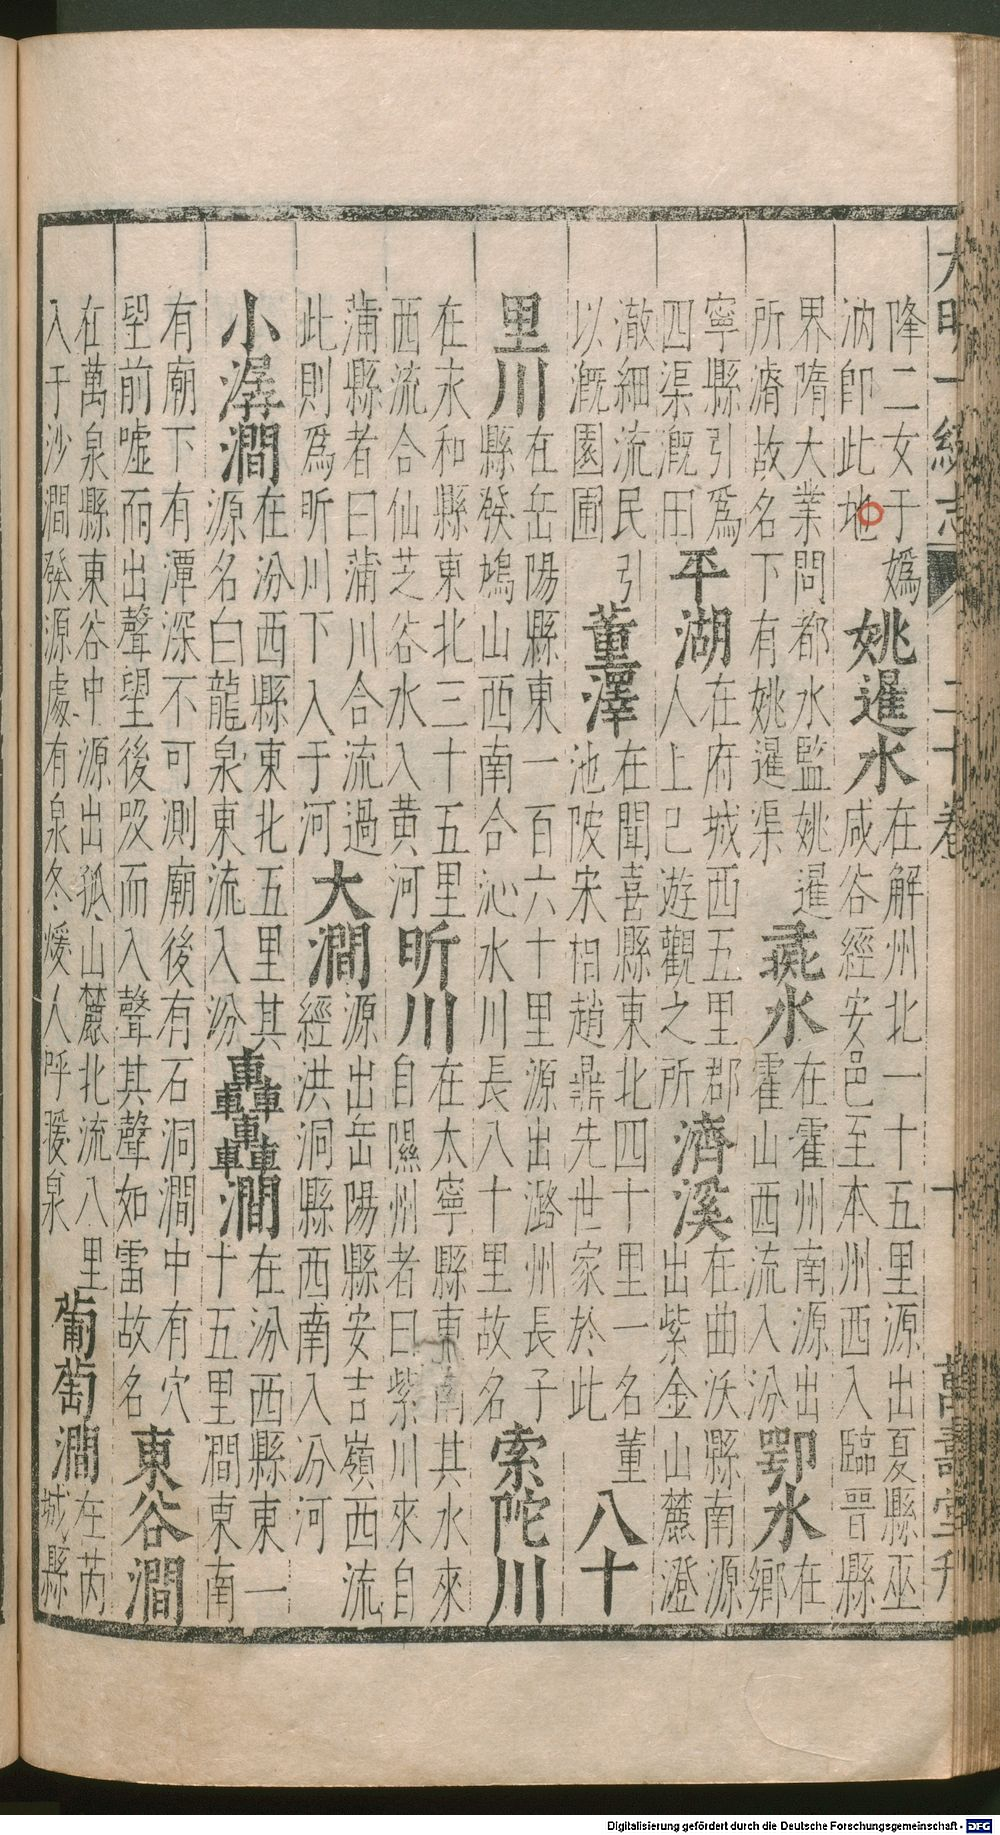 大明一統志 二十卷 十 萬壽堂刊
降二女于媯
汭卽此地
姚暹水
在解州北一十五里源出夏縣巫
咸谷經安邑至本州西入臨晉縣
界隋大業間都水監姚暹
所濬故名下有姚暹渠
彘水
在霍州南源出
霍山西流入汾
鄂水
在
鄉
寧縣引爲
四渠溉田
平湖
在府城西五里郡
人上巳遊觀之所
濟溪
在曲沃縣南源
出紫金山麓澄
澈細流民引
以溉園圃
董澤
在聞喜縣東北四十里一名董
池陂宋相趙鼎先世家於此
八十
里川
在岳陽縣東一百六十里源出潞州長子
縣發鳩山西南合沁水川長八十里故名
索陀川
在永和縣東北三十五里
西流合仙芝谷水入黃河
昕川
在太寧縣東南其水來
自隰州者曰紫川來自
蒲縣者曰蒲川合流過
此則爲昕川下入于河
大澗
源出岳陽縣安吉嶺西流
經洪洞縣西南入汾河
小潺澗
在汾西縣東北五里其
源名白龍泉東流入汾
轟轟澗
在汾西縣東一
十五里澗東南
有廟下有潭深不可測廟後有石洞澗中有穴
望前嘘而出聲望後吸而入聲其聲如雷故名
東谷澗
在萬泉縣東谷中源出孤山麓北流八里
入于沙澗發源處有泉冬煖人呼暖泉
葡萄澗
在芮
城縣
Digitalisierung gefördert durch die Deutsche Forschungsgemeinschaft - DFG